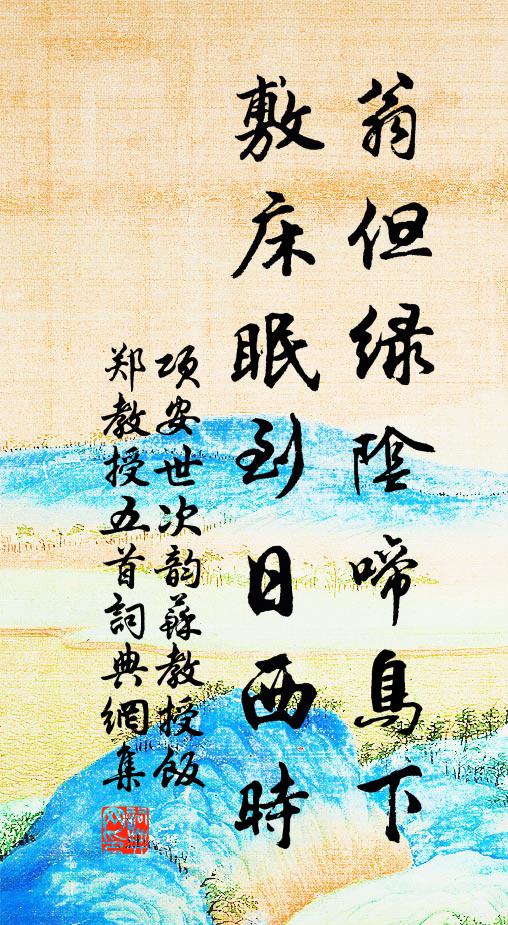 翁但绿陰啼鳥下
敷床眠到日西時
项安世次韵蘇教授飯
郑教授五首詞典網集